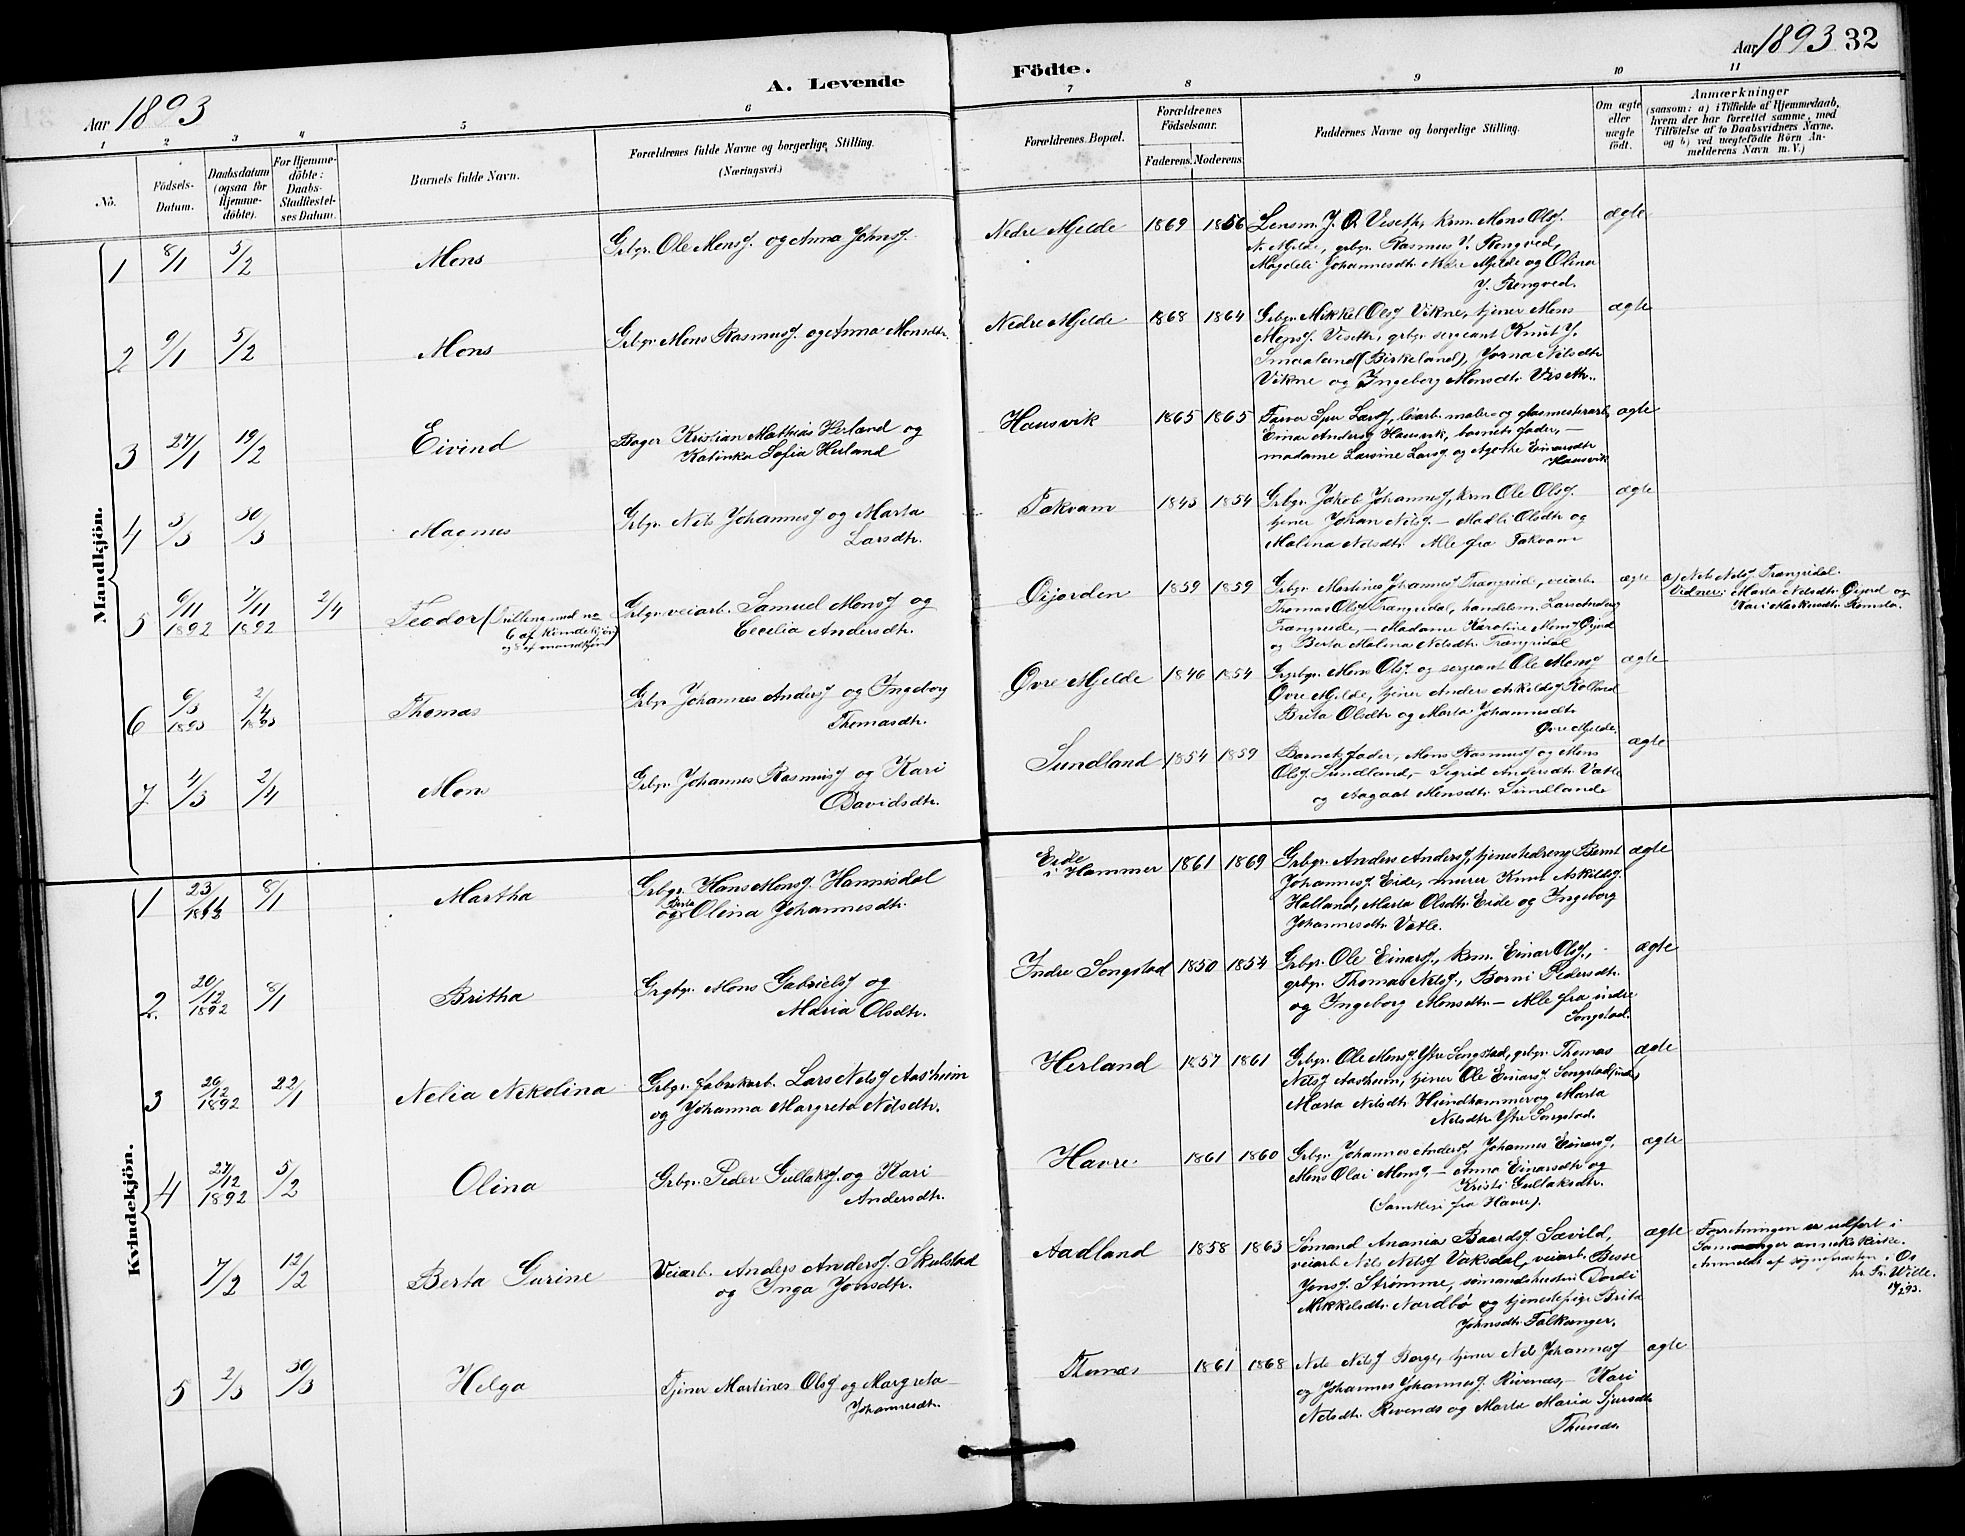 Aar 1893
A. Levende
Födte.
Aar 1893 32
1 2 3 4 5 6 7 8 9 10 11
No.
Födsels-
Datum.
Daabsdatum
(ogsaa for
Hjemme-
döbte).
For Hjemme-
döbte:
Daabs-
Stadfæstel-
ses Datum.
Barnets fulde Navn.
Forældrenes fulde Navne og borgerlige Stilling.
(Næringsvei.)
Forældrenes Bopæl.
Forældrenes
Födselsaar.
Faderens. Moderens.
Faddernes Navne og borgerlige Stilling.
Om ægte
eller
uægte
födt.
Anmærkninger
(saasom: a) i Tilfælde af Hjemmedaab,
hvem der har forrettet samme, med
Tilföielse af to Daabsvidners Navne,
og b) ved uægtefödte Börn An-
melderens Navn m. V.)
Mandkjön.
1 8/1 5/2 Mons
Grbgr. Ole Monsf. og Anna Johnsf.
Nedre Mjelde 1869 1856
Lensm. J. O. Viseth, krm. Mons Olsf.
N. Mjelde, grbgr. Rasmus J. Rengved,
Magdeli Johannesdtr. Nedre Mjelde og Olina
J. Rengved.
ægte
2 9/1 5/2 Mons
Grbgr. Mons Rasmusf. og Anna Monsdtr.
Nedre Mjelde 1868 1864
Grbgr. Mikkel Olsf. Vikne, tjener Mons
Monsf. Viseth, grbgr. sergeant Knut J.
Smaaland (Birkeland), Jorna Nilsdtr.
Vikne og Ingeborg Monsdtr. Viseth.
ægte
3 27/1 19/2 Eivind
Bager Kristian Mathias Herland og
Katinka Sofia Herland
Hausvik 1865 1865
Larsf, maler- og glasmesterarb.
Einar Andersf. Hausvik, barnets fader, –
madame Larsine Larsf. og Agathe Einarsdtr.
Hausvik
ægte
4 3/3 30/3 Magnus
Grbgr. Nils Johannesf og Marta
Larsdtr.
Takvam 1843 1854
Grbgr. Jakob Johannesf, krm Ole Olsf.
tjener Johan Nilsf. – Madli Olsdtr og
Malina Nilsdtr. Alle fra Takvam
ægte
5 6/11 1892 7/11 1892 2/4 Teodor (Trilling med no
6 af kvindekjön
og 8 af mandkjön)
Grbgr. veiarb. Samuel Monsf og
Cecilia Andersdtr.
Öijorden 1859 1859
Grbgr. Martines Johannesf Trangreid, veiarb.
Thomas Olsf Trængridal, handelsm. Lars Andersf
Trængreide, – Madame Karoline Monsf Öijord
og Berta Malina Nilsdtr. Trængridal
ægte
a) Nils Nilsf. Trængridal.
Vidner: Marta Nilsdtr. Öijord og
Kari Markusdtr. Romslo.
6 6/3 1893 2/4 1893 Thomas
Grbgr. Johannes Andersf og Ingeborg
Thomasdtr.
Övre Mjelde 1846 1854
Grbgr. Mons Olsf. og sergeant Ole Monsf
Övre Mjelde, tjener Anders Askildsf Rolland
Brita Olsdtr og Marta Johannesdtr
Övre Mjelde.
ægte
7. 4/3 2/4 Mons
Grbgr. Johannes Rasmusf og Kari
Davidsdtr.
Sundland 1854 1859
Barnets fader, Mons Rasmusf og Mons
Olsf. Sundland, – Sigrid Andersdtr. Vatle
og Aagaat Monsdtr. Sundland
ægte
Kvindekjön.
1 23/11 8/1 Martha
Grbgr. Hans Monsf. Hannisdal
og Berta Olina Johannesdtr.
Eide
i Hammer 1861 1869
Grbgr. Anders Andersf, tjenestedreng Bernt
Johannesf. Eide, murer Knut Askildsf.
Halland, Marta Olsdtr. Eide og Ingeborg
Johannesdtr. Vatle.
ægte
2. 20/12 1892 8/1 Britha
Grgbgr. Mons Gabrielsf og
Maria Olsdtr.
Indre Songstad 1850 1854
Grbgr. Ole Einarsf, krm. Einar Olsf, –
grbgr. Thomas Nilsf, Borni Pedersdtr.
og Ingeborg Monsdtr. – Alle fra indre
Songstad.
ægte
3 26/12 1892 22/1 Nelia Nikolina
Grbgr. fabrikarb. Lars Nilsf Aasheim
og Johanna Margreta Nilsdtr.
Herland 1857 1861
Grbgr. Ole Monsf. Ytre Songstad, grbgr. Thomas
Nilsf Aasheim, tjener Ole Einarsf. Songstad (indre)
Marta Nilsdtr. Hundhammer og Marta
Nilsdtr. Ytre Songstad.
ægte
4 27/12 1892 5/2 Olina
Grbgr. Peder Gullaksf. og Kari
Andersdtr.
Havre 1861 1860
Grbgr. Johannes Andersf, Johannes Einarsf.
Mons Olai Monsf, – Anna Einarsdtr og
Kristi Gullaksdtr.
(Samtlige fra Havre).
ægte
7/2 12/2 Berta Gurine
Veiarb. Anders Andersf. Skulstad
og Inga Jonsdtr.
Aadland 1858 1863
Sömand Ananias Baardsf Sævild,
veiarb. Nils Nilsf Vaksdal, veiarb. Besse
Jensf. Strömme, sömandshustru Dordi
Mikkelsdtr. Nordbö og tjenestepige Brita
Johnsdtr. Falkanger.
ægte
Forretningen er udfört i
Samnanger annekskirke.
Anmeldt af sognepresten i Os
hr. Fr. Wille.
17/2 93.
5 2/3 30/3 Helga
Tjener Martines Olsf og Margreta
Johannesdtr.
Tunæs 1861 1868
Nils Nilsf Borge, tjener Nils Johannesf
og Johannes Johannesf. Rivenæs, – Kari
Nilsdtr. Rivenæs og Marta Maria Sjursdtr.
Thunæs.
ægte